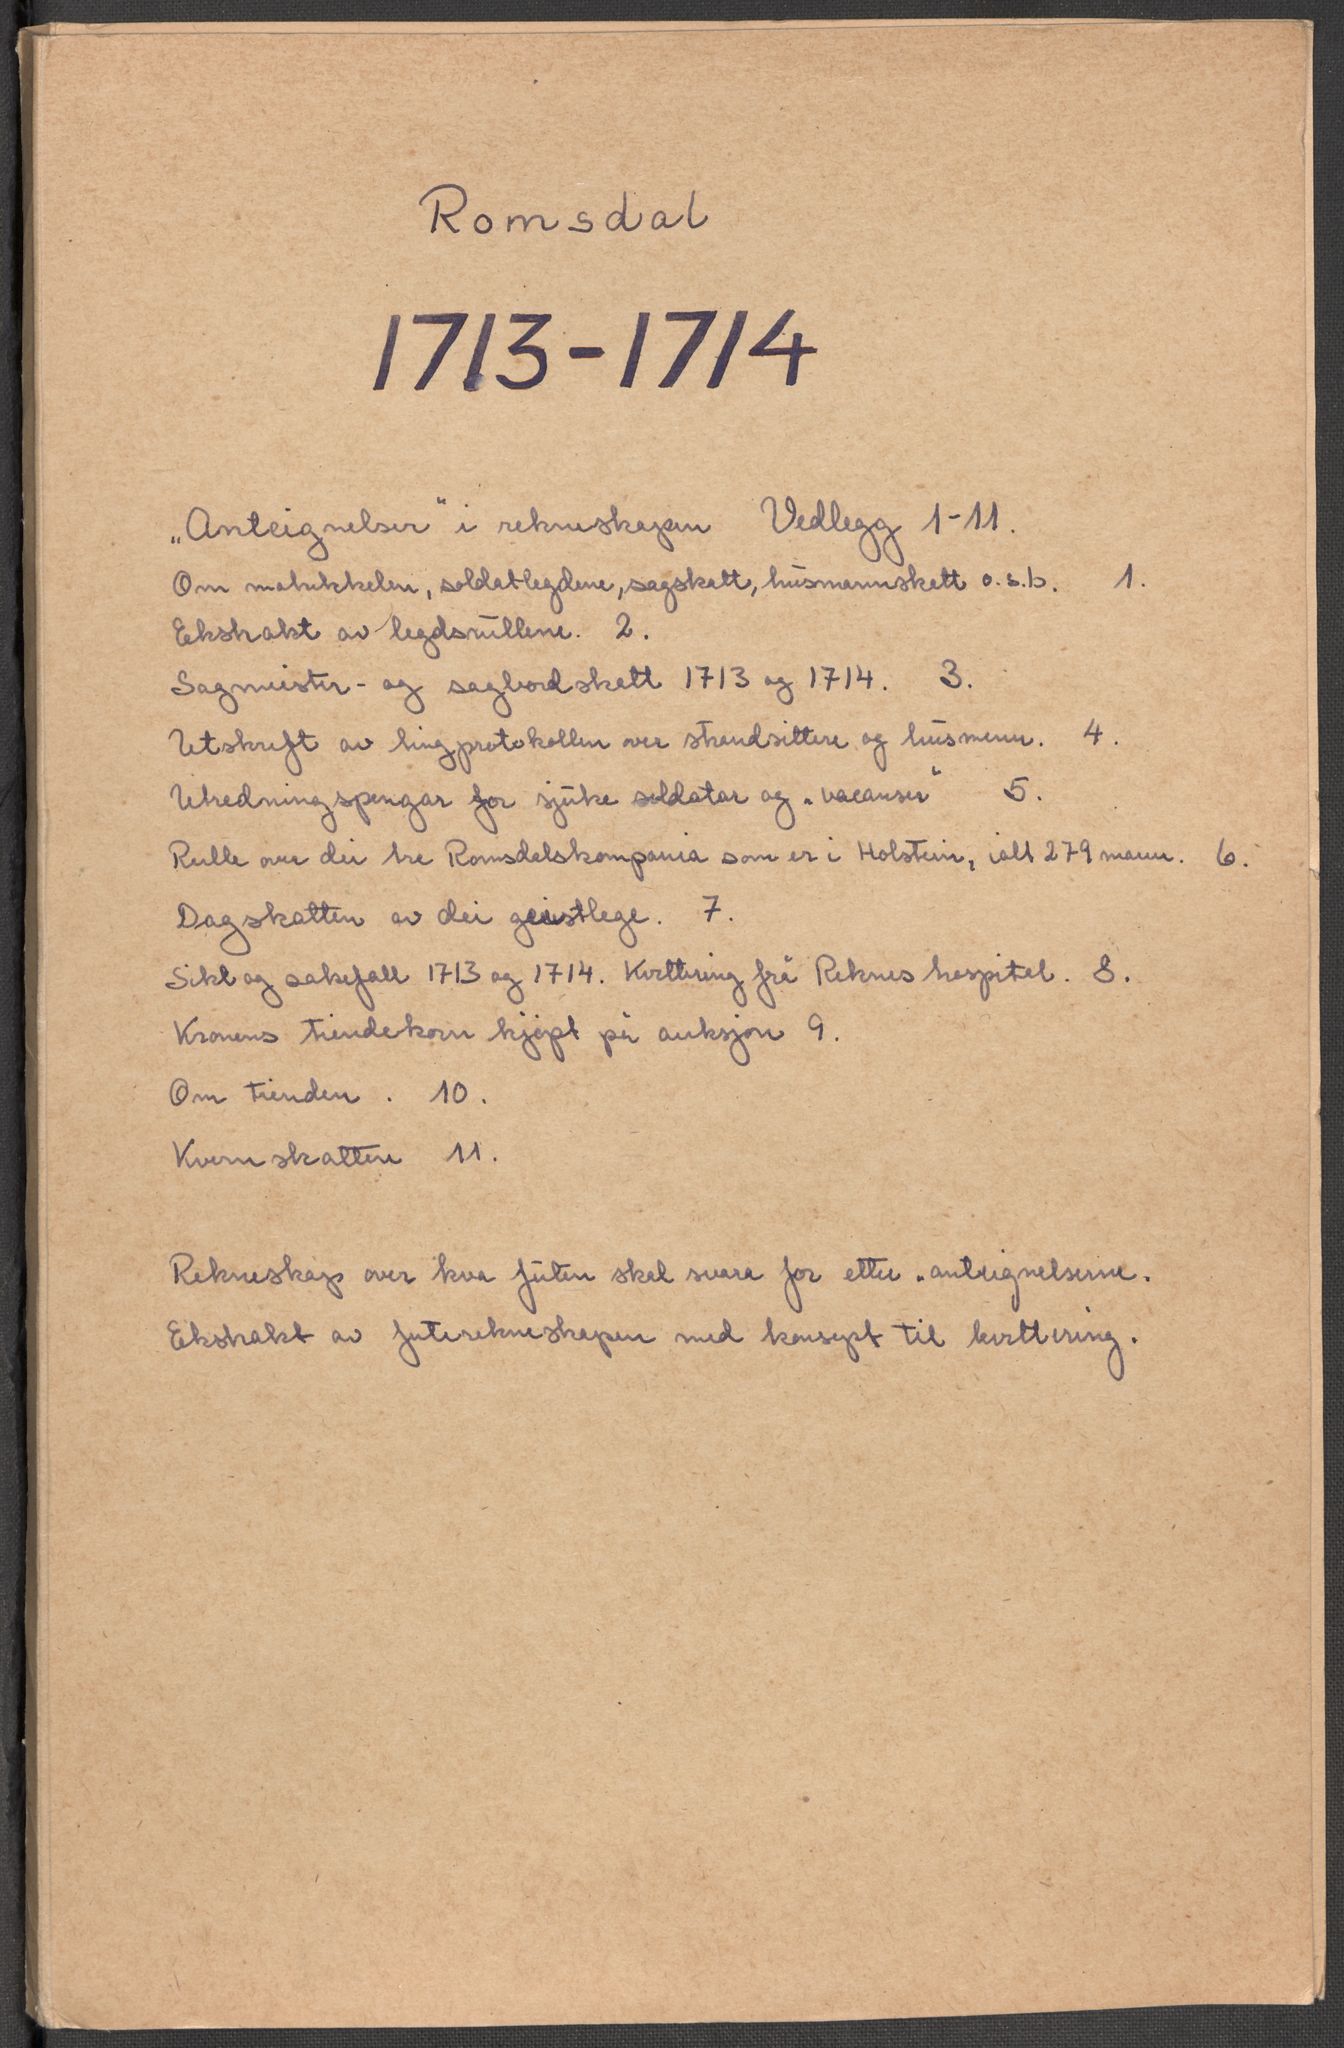 Romsdal
1713-1714
„Anteignelser" i rekneskapen Vedlegg 1-11.
Om matrikkelen, soldatlegdene, sagskatt, husmannskatt o.s.b. 1.
Ekstrakt av legdsrullene. 2.
Sagmeister- og sagbordskatt 1713 og 1714. 3.
Utskrift av tingprotokollen over strandsittere og husmenn. 4.
Utredningspengar for sjuke soldatar og „vacanser" 5.
Rulle over dei tre Romsdalskompania som er i Holstein, ialt 279 mann. 6.
Dagskatten av dei geistlege. 7.
Sikt og sakefall 1713 og 1714. Kvittering frå Reknes hospital. 8.
Kronens tiendekorn kjøpt på auksjon 9.
Om tienden. 10.
Kvernskatten 11.
Rekneskap over kva futen skal svara for etter „anteignelserne.
Ekstrakt av futerekneskapen med konsept til kvittering.